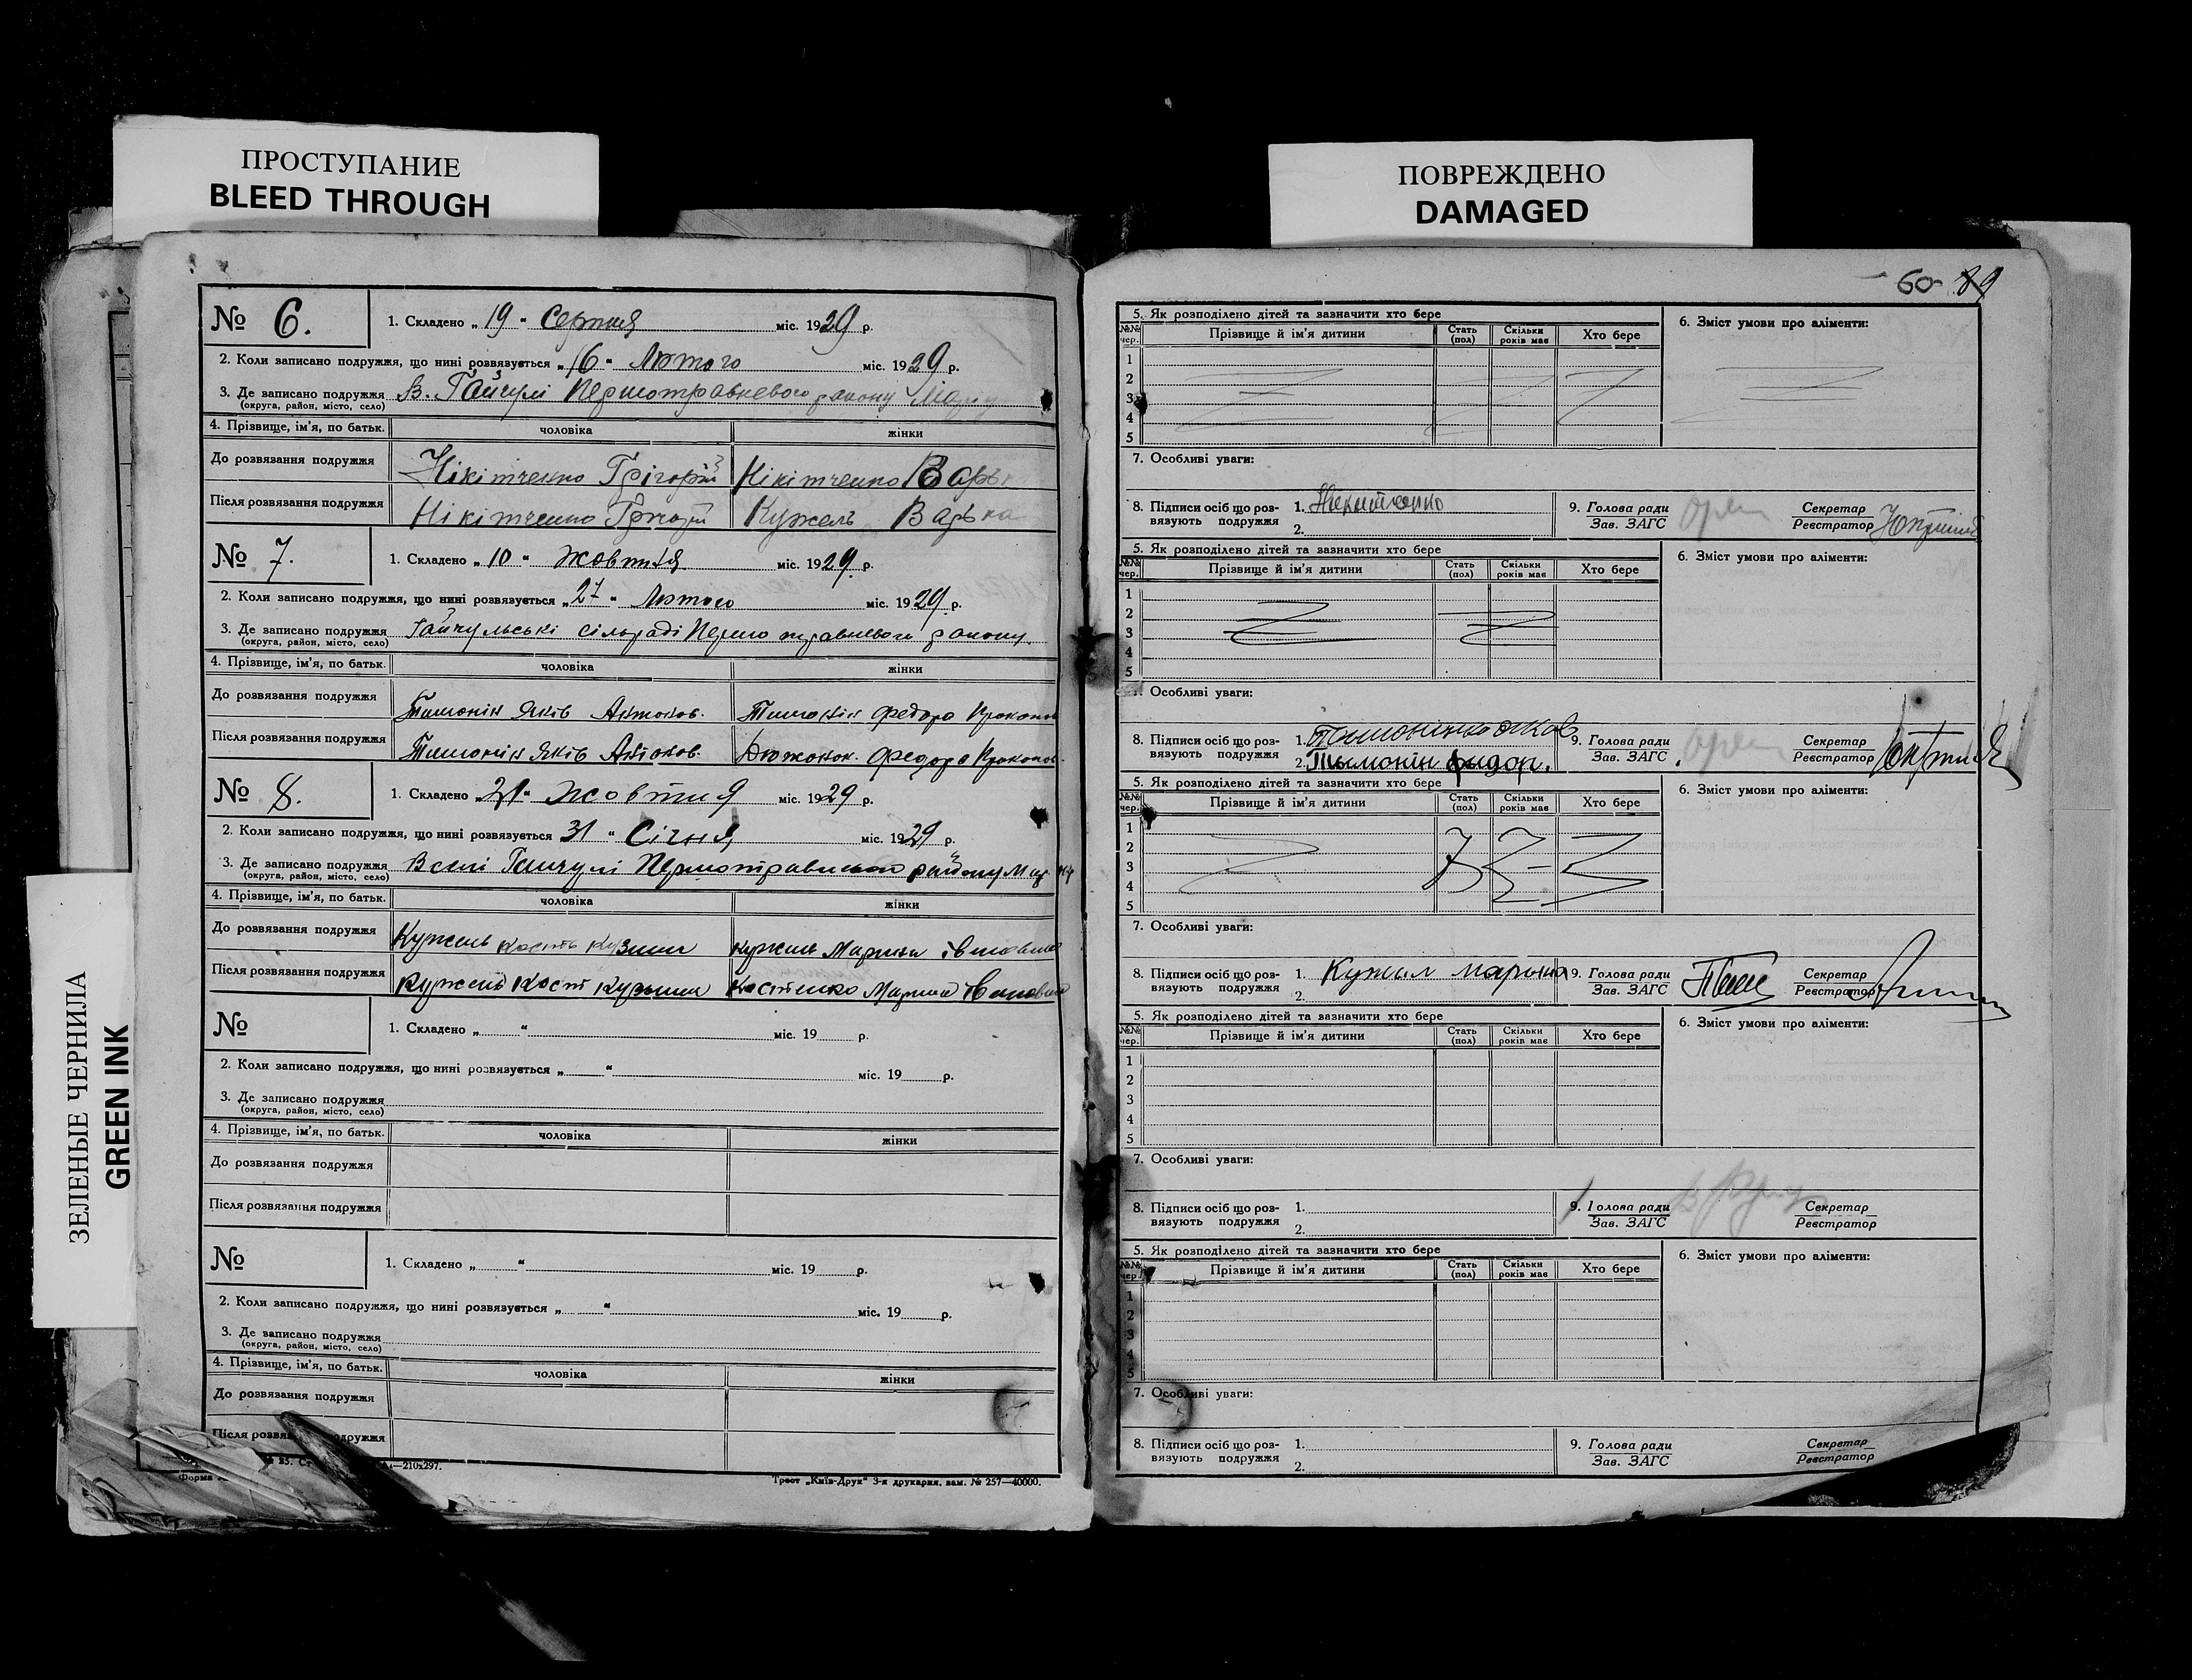 ПРОСТУПАНИЕ
BLEED THROUGH
ПОВРЕЖДЕНО
DAMAGED
ЗЕЛЕНЫЕ ЧЕРНИЛА
GREEN INK
№ 6.
1. Складено „ 19 “ Серпня міс. 1929 р.
2. Коли записано подружжя, що нині розвязується „ 16 “ Лютого міс. 1929 р.
3. Де записано подружжя В. Гайчулі Першотравневого району
(округа, район, місто, село)
4. Прізвище, ім'я, по батьк. чоловіка жінки
До розвязання подружжя Нікітченко Грігорій Нікітченко Варька
Після розвязання подружжя Нікітченко Грігорій Кужель Варька
№ 7.
1. Складено „ 10 “ Жовтня міс. 1929. р.
2. Коли записано подружжя, що нині розвязується „ 27 “ Лютого міс. 1929 р.
3. Де записано подружжя Гайчульські сільраді Першотравневого району.
(округа, район, місто, село)
4. Прізвище, ім'я, по батьк. чоловіка жінки
До розвязання подружжя Тимонін Яків Антонов. Тимонін Федора Прокопов
Після розвязання подружжя Тимонін Яків Антонов. Федора Прокопов.
№ 8.
1. Складено „ 21 “ Жовтня міс. 1929 р.
2. Коли записано подружжя, що нині розвязується 31 “ Січня міс. 1929 р.
3. Де записано подружжя В селі Гайчулі Першотравневого району Мар.
(округа, район, місто, село)
4. Прізвище, ім'я, по батьк. чоловіка жінки
До розвязання подружжя Кужель Кость Кузьмич Кужель Марина Івановна
Після розвязання подружжя Кужель Кост Кузьмич Костенко Марина Івановна
№
1. Складено „ “ міс. 19 р.
2. Коли записано подружжя, що нині розвязується „ “ міс. 19 р.
3. Де записано подружжя
(округа, район, місто, село)
4. Прізвище, ім'я, по батьк. чоловіка жінки
До розвязання подружжя
Після розвязання подружжя
№
1. Складено „ “ міс. 19 р.
2. Коли записано подружжя, що нині розвязується „ “ міс. 19 р.
3. Де записано подружжя
(округа, район, місто, село)
4. Прізвище, ім'я, по батьк. чоловіка жінки
До розвязання подружжя
Після розвязання подружжя
Форма 210х297.
Трест „Київ-Друк“ 3-я друкарня, зам. № 257—40000.
60 89
5. Як розподілено дітей та зазначити хто бере 6. Зміст умови про аліменти:
№№ чер. Прізвище й ім'я дитини Стать (пол) Скільки років має Хто бере
1
2
3
4
5
7. Особливі уваги:
8. Підписи осіб що роз- 1. Нікітченко 9. Голова ради Секретар
вязують подружжя 2. Зав. ЗАГС Реєстратор
5. Як розподілено дітей та зазначити хто бере 6. Зміст умови про аліменти:
№№ чер. Прізвище й ім'я дитини Стать (пол) Скільки років має Хто бере
1
2
3
4
5
7. Особливі уваги:
8. Підписи осіб що роз- 1. 9. Голова ради Секретар
вязують подружжя 2. Тымонін фидор. Зав. ЗАГС Реєстратор
5. Як розподілено дітей та зазначити хто бере 6. Зміст умови про аліменти:
№№ чер. Прізвище й ім'я дитини Стать (пол) Скільки років має Хто бере
1
2
3
4
5
7. Особливі уваги:
8. Підписи осіб що роз- 1. Кужил марына 9. Голова ради Секретар
вязують подружжя 2. Зав. ЗАГС Реєстратор
5. Як розподілено дітей та зазначити хто бере 6. Зміст умови про аліменти:
№№ чер. Прізвище й ім'я дитини Стать (пол) Скільки років має Хто бере
1
2
3
4
5
7. Особливі уваги:
8. Підписи осіб що роз- 1. 9. Голова ради Секретар
вязують подружжя 2. Зав. ЗАГС Реєстратор
5. Як розподілено дітей та зазначити хто бере 6. Зміст умови про аліменти:
№№ чер. Прізвище й ім'я дитини Стать (пол) Скільки років має Хто бере
1
2
3
4
5
7. Особливі уваги:
8. Підписи осіб що роз- 1. 9. Голова ради Секретар
вязують подружжя 2. Зав. ЗАГС Реєстратор